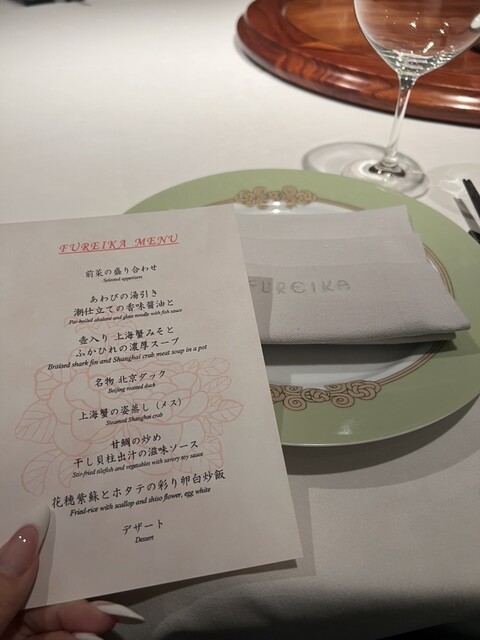 FUREIKA MENU
前菜の盛り合わせ
Selected appetizers
あわびの湯引き
潮仕立ての香味醤油と
Par-boiled abalone and glass noodle with fish sauce
壺入り 上海蟹みそと
ふかひれの濃厚スープ
Braised shark fin and Shanghai crab meat soup in a pot
名物 北京ダック
Beijing roasted duck
上海蟹の姿蒸し（メス）
Steamed Shanghai crab
甘鯛の炒め
干し貝柱出汁の滋味ソース
Stir-fried tilefish and vegetables with savory soy sauce
花穂紫蘇とホタテの彩り卵白炒飯
Fried-rice with scallop and shiso flower, egg white
デザート
Dessert
FUREIKA